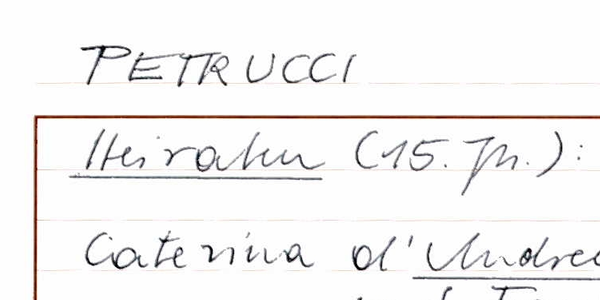 PETRUCCI
Heiraten (15. Jh.):
Caterina d'Andre